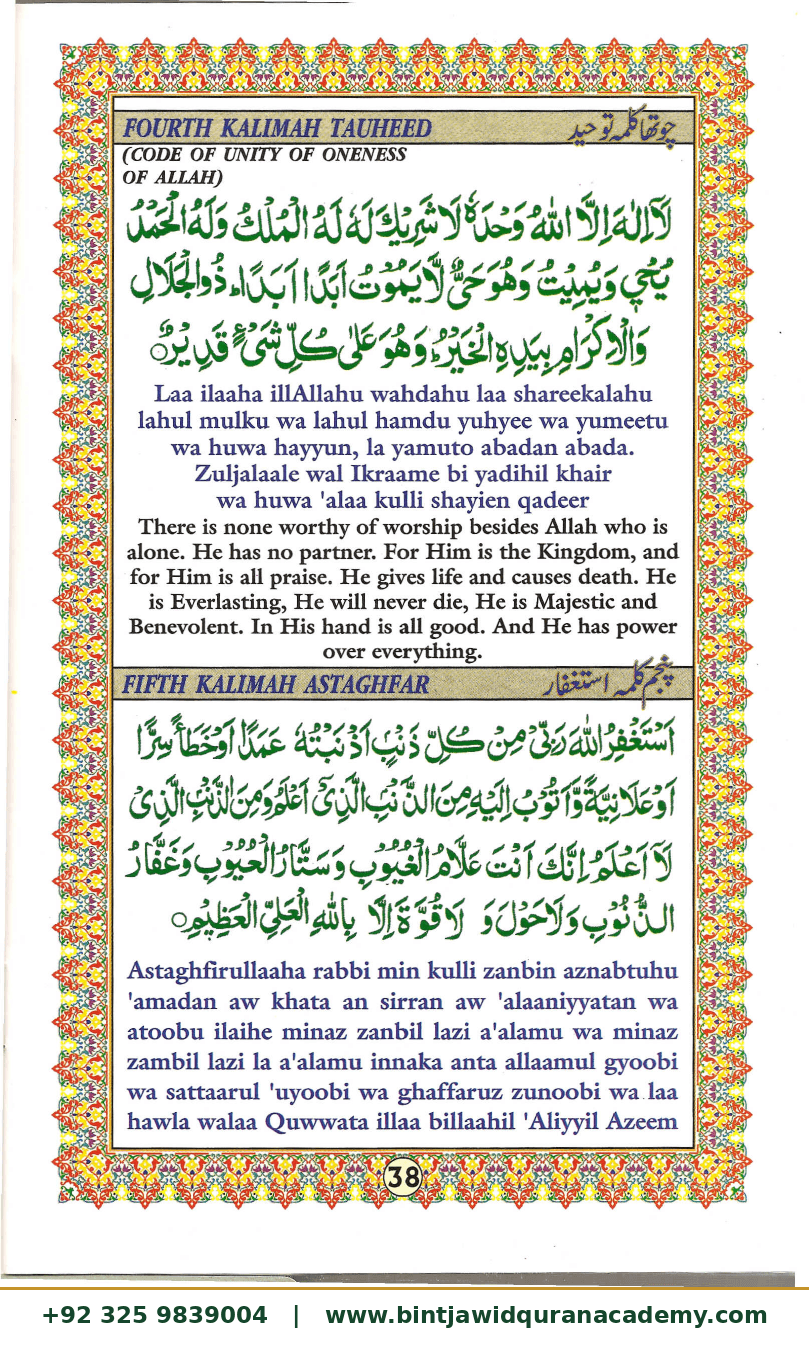 FOURTH KALIMAH TAUHEED چوتھا کلمہ توحید
(CODE OF UNITY OF ONENESS
OF ALLAH)
لَآ اِلٰهَ اِلَّا اللّٰهُ وَحْدَهٗ لَا شَرِيْكَ لَهٗ لَهُ الْمُلْكُ وَلَهُ الْحَمْدُ
يُحْيٖ وَيُمِيْتُ وَهُوَ حَیٌّ لَّا يَمُوْتُ اَبَدًا اَبَدًاؕ ذُوالْجَلَالِ
وَالْاِكْرَامِ بِيَدِهِ الْخَيْرُؕ وَهُوَ عَلٰى كُلِّ شَیْءٍ قَدِيْرٌ○
Laa ilaaha illAllahu wahdahu laa shareekalahu
lahul mulku wa lahul hamdu yuhyee wa yumeetu
wa huwa hayyun, la yamuto abadan abada.
Zuljalaale wal Ikraame bi yadihil khair
wa huwa 'alaa kulli shayien qadeer
There is none worthy of worship besides Allah who is
alone. He has no partner. For Him is the Kingdom, and
for Him is all praise. He gives life and causes death. He
is Everlasting, He will never die, He is Majestic and
Benevolent. In His hand is all good. And He has power
over everything.
FIFTH KALIMAH ASTAGHFAR پنجم کلمہ استغفار
اَسْتَغْفِرُ اللّٰهَ رَبِّیْ مِنْ كُلِّ ذَنْۢبٍ اَذْنَبْتُهٗ عَمَدًا اَوْ خَطَأً سِرًّا
اَوْ عَلَانِيَةً وَّاَتُوْبُ اِلَيْهِ مِنَ الذَّنْۢبِ الَّذِیْٓ اَعْلَمُ وَمِنَ الذَّنْۢبِ الَّذِیْ
لَآ اَعْلَمُ اِنَّكَ اَنْتَ عَلَّامُ الْغُيُوْبِ وَسَتَّارُ الْعُيُوْبِ وَغَفَّارُ
الذُّنُوْبِ وَلَا حَوْلَ وَ لَا قُوَّةَ اِلَّا بِاللّٰهِ الْعَلِیِّ الْعَظِيْمِ○
Astaghfirullaaha rabbi min kulli zanbin aznabtuhu
'amadan aw khata an sirran aw 'alaaniyyatan wa
atoobu ilaihe minaz zanbil lazi a'alamu wa minaz
zambil lazi la a'alamu innaka anta allaamul gyoobi
wa sattaarul 'uyoobi wa ghaffaruz zunoobi wa laa
hawla walaa Quwwata illaa billaahil 'Aliyyil Azeem
38
+92 325 9839004 | www.bintjawidquranacademy.com